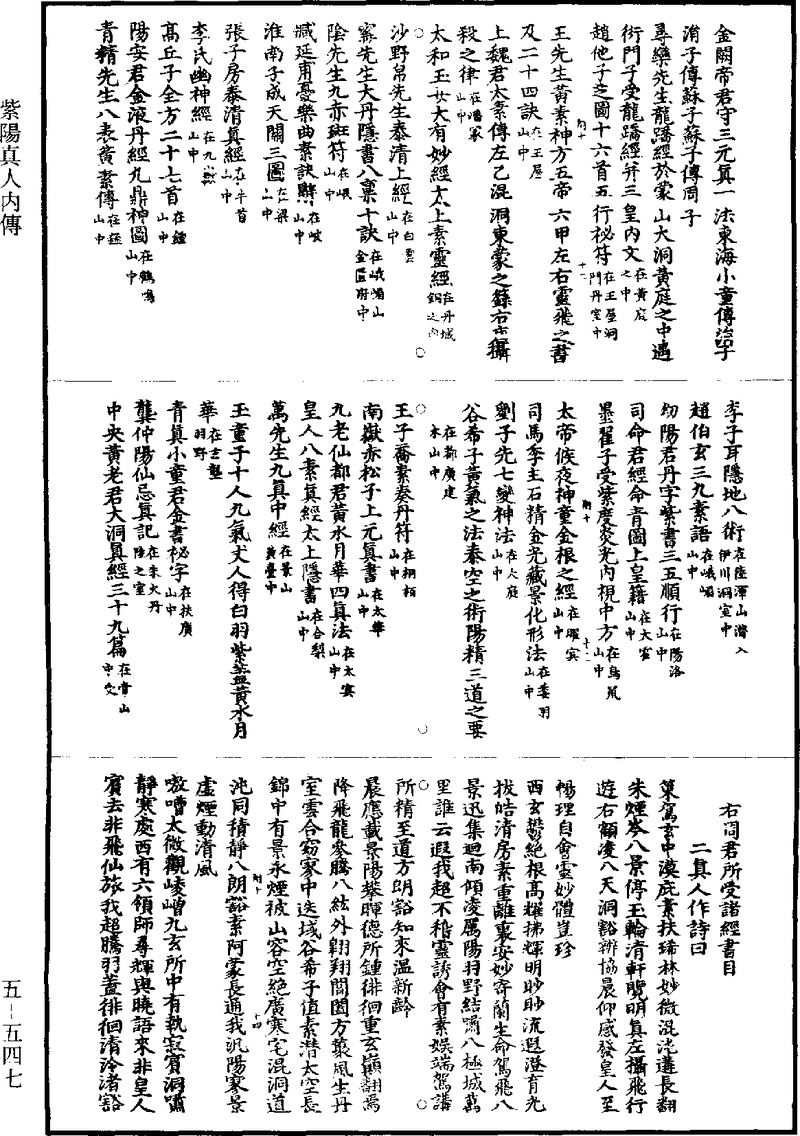 紫陽真人内傳
金闕帝君守三元真一法東海小童傳涓子
涓子傳蘇子蘇子傳周子
尋欒先生龍蹻經於蒙山大洞黃庭之中遇
衍門子受龍蹻經并三皇內文在黃庭之中
趙他子芝圖十六首五行祕符在王屋洞門丹室中
王先生黃素神方五帝六甲左右靈飛之書
及二十四訣在王屋山中
上魏君太素傳左乙混洞東蒙之籙右庚攝
殺之律在嶓冢山中
太和玉女大有妙經太上素靈經在丹城銅之內
沙野帛先生泰清上經在白雲山中
甯先生大丹隱書八稟十訣在峨嵋山金匱府中
陰先生九赤班符在岷山中
臧延甫憂樂曲素訣辭在岐山中
淮南子成天關三圖在梁山中
張子房泰清真經在牛首山中
李氏幽神經在九山中
高丘子全方二十七首在鍾山中
陽安君金液丹經九鼎神圖在鶴鳴山中
青精先生八表黃素傳在山中
李子耳隱地八術在陸渾山潛入伊川洞室中
趙伯玄三九素語在峨嵋山中
幼陽君丹字紫書三五順行在陽洛山中
司命君經命青圖上皇籍在大霍山中
墨翟子受紫度炎光內視中方在鳥鼠山中
太帝候夜神童金根之經在曜賓山中
司馬季主石精金光藏景化形法在委羽山中
劉子先七變神法在大庭山中
谷希子黃氣之法泰空之術陽精三道之要
在都廣建木山中
王子喬素奏丹符在桐栢山中
南嶽赤松子上元真書在太華山中
九老仙都君黃水月華四真法在太冥山中
皇人八素真經太上隱書在合梨山中
萬先生九真中經在景山黃臺中
玉童子十人九氣丈人得白羽紫蓋黃水月
華在玄壟羽野
青真小童君金書祕字在扶廣山中
龔仲陽仙忌真記在朱火丹陵之室
中央黃老君大洞真經三十九篇在常山中受
右周君所受諸經書目
二真人作詩曰
策駕玄中漠庇素扶琇林妙微混沌邁長翻
朱煙岑八景停玉輪清軒覽明真左攝飛行
遊右顧凌八天洞豁辦協晨仰感發皇人至
暢理自會靈妙體豈珍
西玄鬱絕根高耀拂輝明眇眇流遐澄育光
拔皓清房素重離裏安妙寄蘭生命駕飛八
景迅集迴南傾凌厲陽羽野結嘯八極城萬
里誰云遐我超不稽靈誘會有素娛端駕講
所精至道方朗豁知來温新齡
晨應載景陽攀暉德所鍾徘徊重玄巔翻焉
降飛龍參騰八絃外翱翔閶闔方策風生丹
室雲合窈冥中迭域谷希子值素潛太空長
錦中有景永煙彼山容空絕廣寒宅混洞道
沌同積靜八朗豁素阿蒙長通我汎陽寥景
虛煙動清風
嗷嘈太微觀崚嶒九玄所中有執寂賓洞嘯
靜寒處西有六領師尋輝與曉語來非皇人
賓去非飛仙旅我超騰羽蓋徘徊清泠渚豁
五-五四七